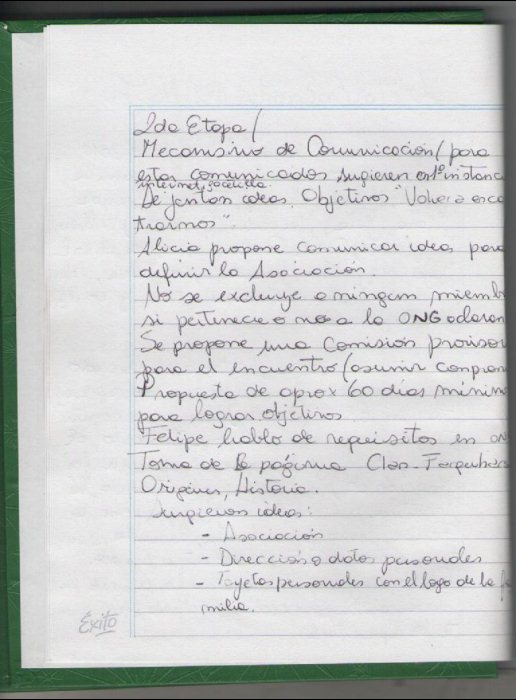 2da Etapa/
Mecanismo de Comunicación/para
estar comunicados sugieren en 1º instanc
internet, gacetilla.
De juntan ideas. Objetivos "Volver a enco
trarnos".
Alicia propone comunicar ideas para
definir la Asociación.
No se excluye a ningun miemb
si pertenece o no a la ONG aclaran
Se propone una Comisión provisor
para el encuentro (asumir comprom
Propuesta de aprox 60 días mínim
para lograr objetivos
Felipe hablo de requisitos en ON
Toma de la página Clan Farquhars
Orígenes, Historia.
Sugieren ideas:
- Asociación
- Dirección o datos personales
- Tarjetas personales con el logo de la fa
milia.
Éxito